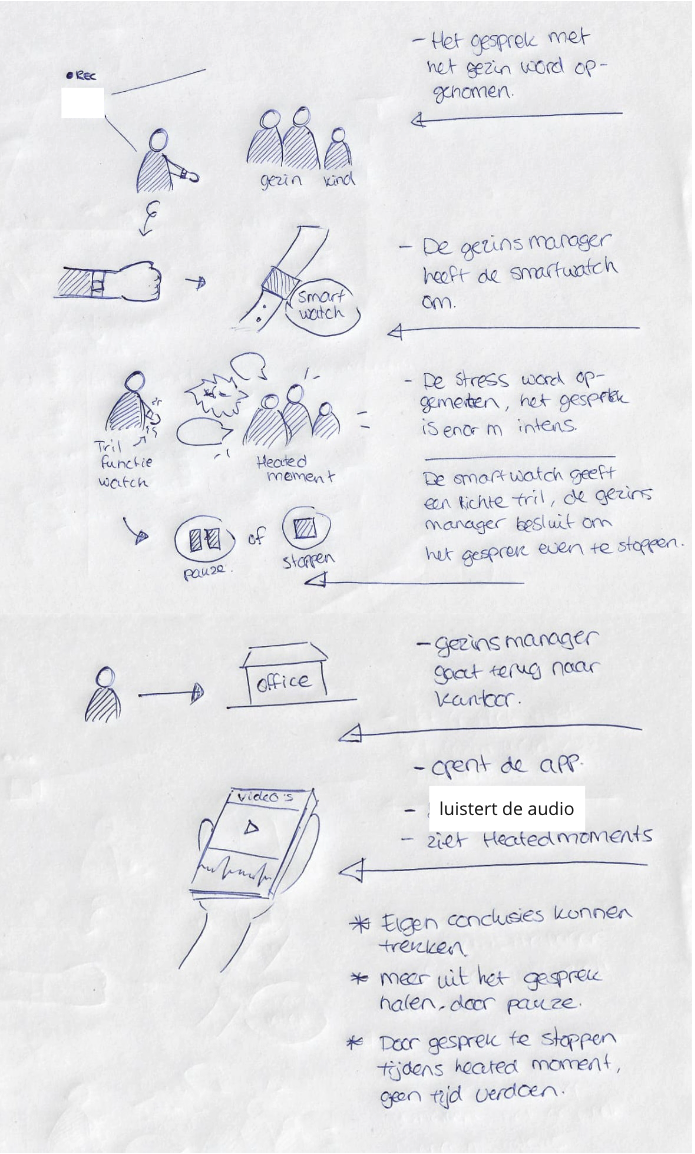 • REC
- Het gesprek met
het gezin word op-
genomen.
gezin kind
- De gezinsmanager
heeft de smartwatch
om.
Smart
watch
- De stress word op-
gemeten, het gesprek
is enorm intens.
Tril
functie
watch
Heated
moment
De smartwatch geeft
een lichte tril, de gezins
manager besluit om
het gesprek even te stoppen.
of
pauze.
stoppen
- gezinsmanager
gaat terug naar
kantoor.
office
- opent de app.
video's
- luistert de audio
- ziet Heatedmoments
* Eigen conclusies kunnen
trekken.
* meer uit het gesprek
halen, door pauze.
* Door gesprek te stoppen
tijdens heated moment,
geen tijd verdoen.